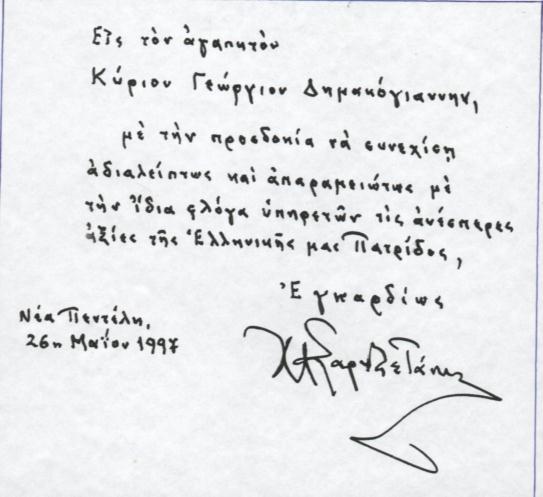 Εἰς τὸν ἀγαπητὸν
Κύριον Γεώργιον Δημακόγιαννην,
μὲ τὴν προσδοκία νὰ συνεχίσῃ
ἀδιαλείπτως καὶ ἀπαραμειώτως μὲ
τὴν ἴδια φλόγα ὑπηρετῶν τὶς ἀνέσπερες
ἀξίες τῆς Ἑλληνικῆς μας Πατρίδος,
Ἐγκαρδίως
Νέα Πεντέλη,
26η Μαΐου 1997
Χ. Α. Σαρτζετάκης